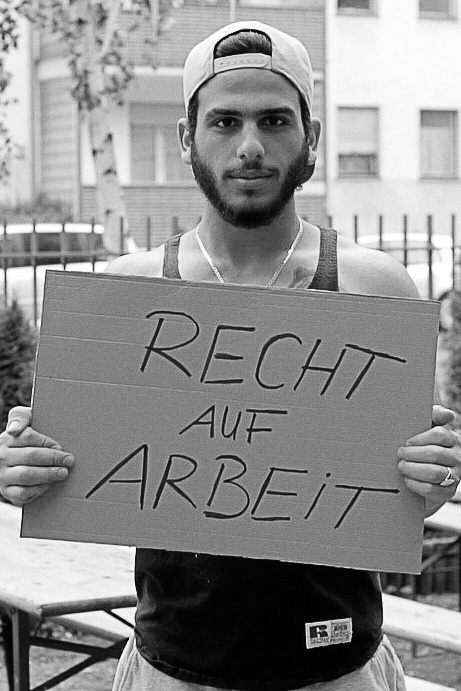 RECHT
AUF
ARBEiT
R